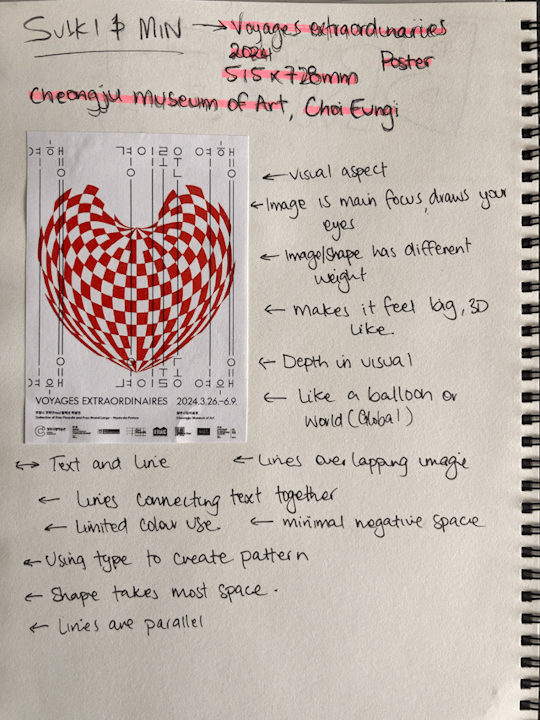 SULKI & MIN → Voyages extraordinaries
2024
515 x 728mm Poster
Cheongju Museum of Art, Choi Eungi
← visual aspect
← Image is main focus, draws your
eyes
← Image/shape has different
weight
← makes it feel big, 3D
like.
← Depth in visual
← Like a balloon or
World (Global)
VOYAGES EXTRAORDINAIRES 2024.3.26.–6.9.
↔ Text and line ← Lines overlapping image
← Lines connecting text together
← Limited colour use. ← minimal negative space
← Using type to create pattern
← Shape takes most space.
← Lines are parallel